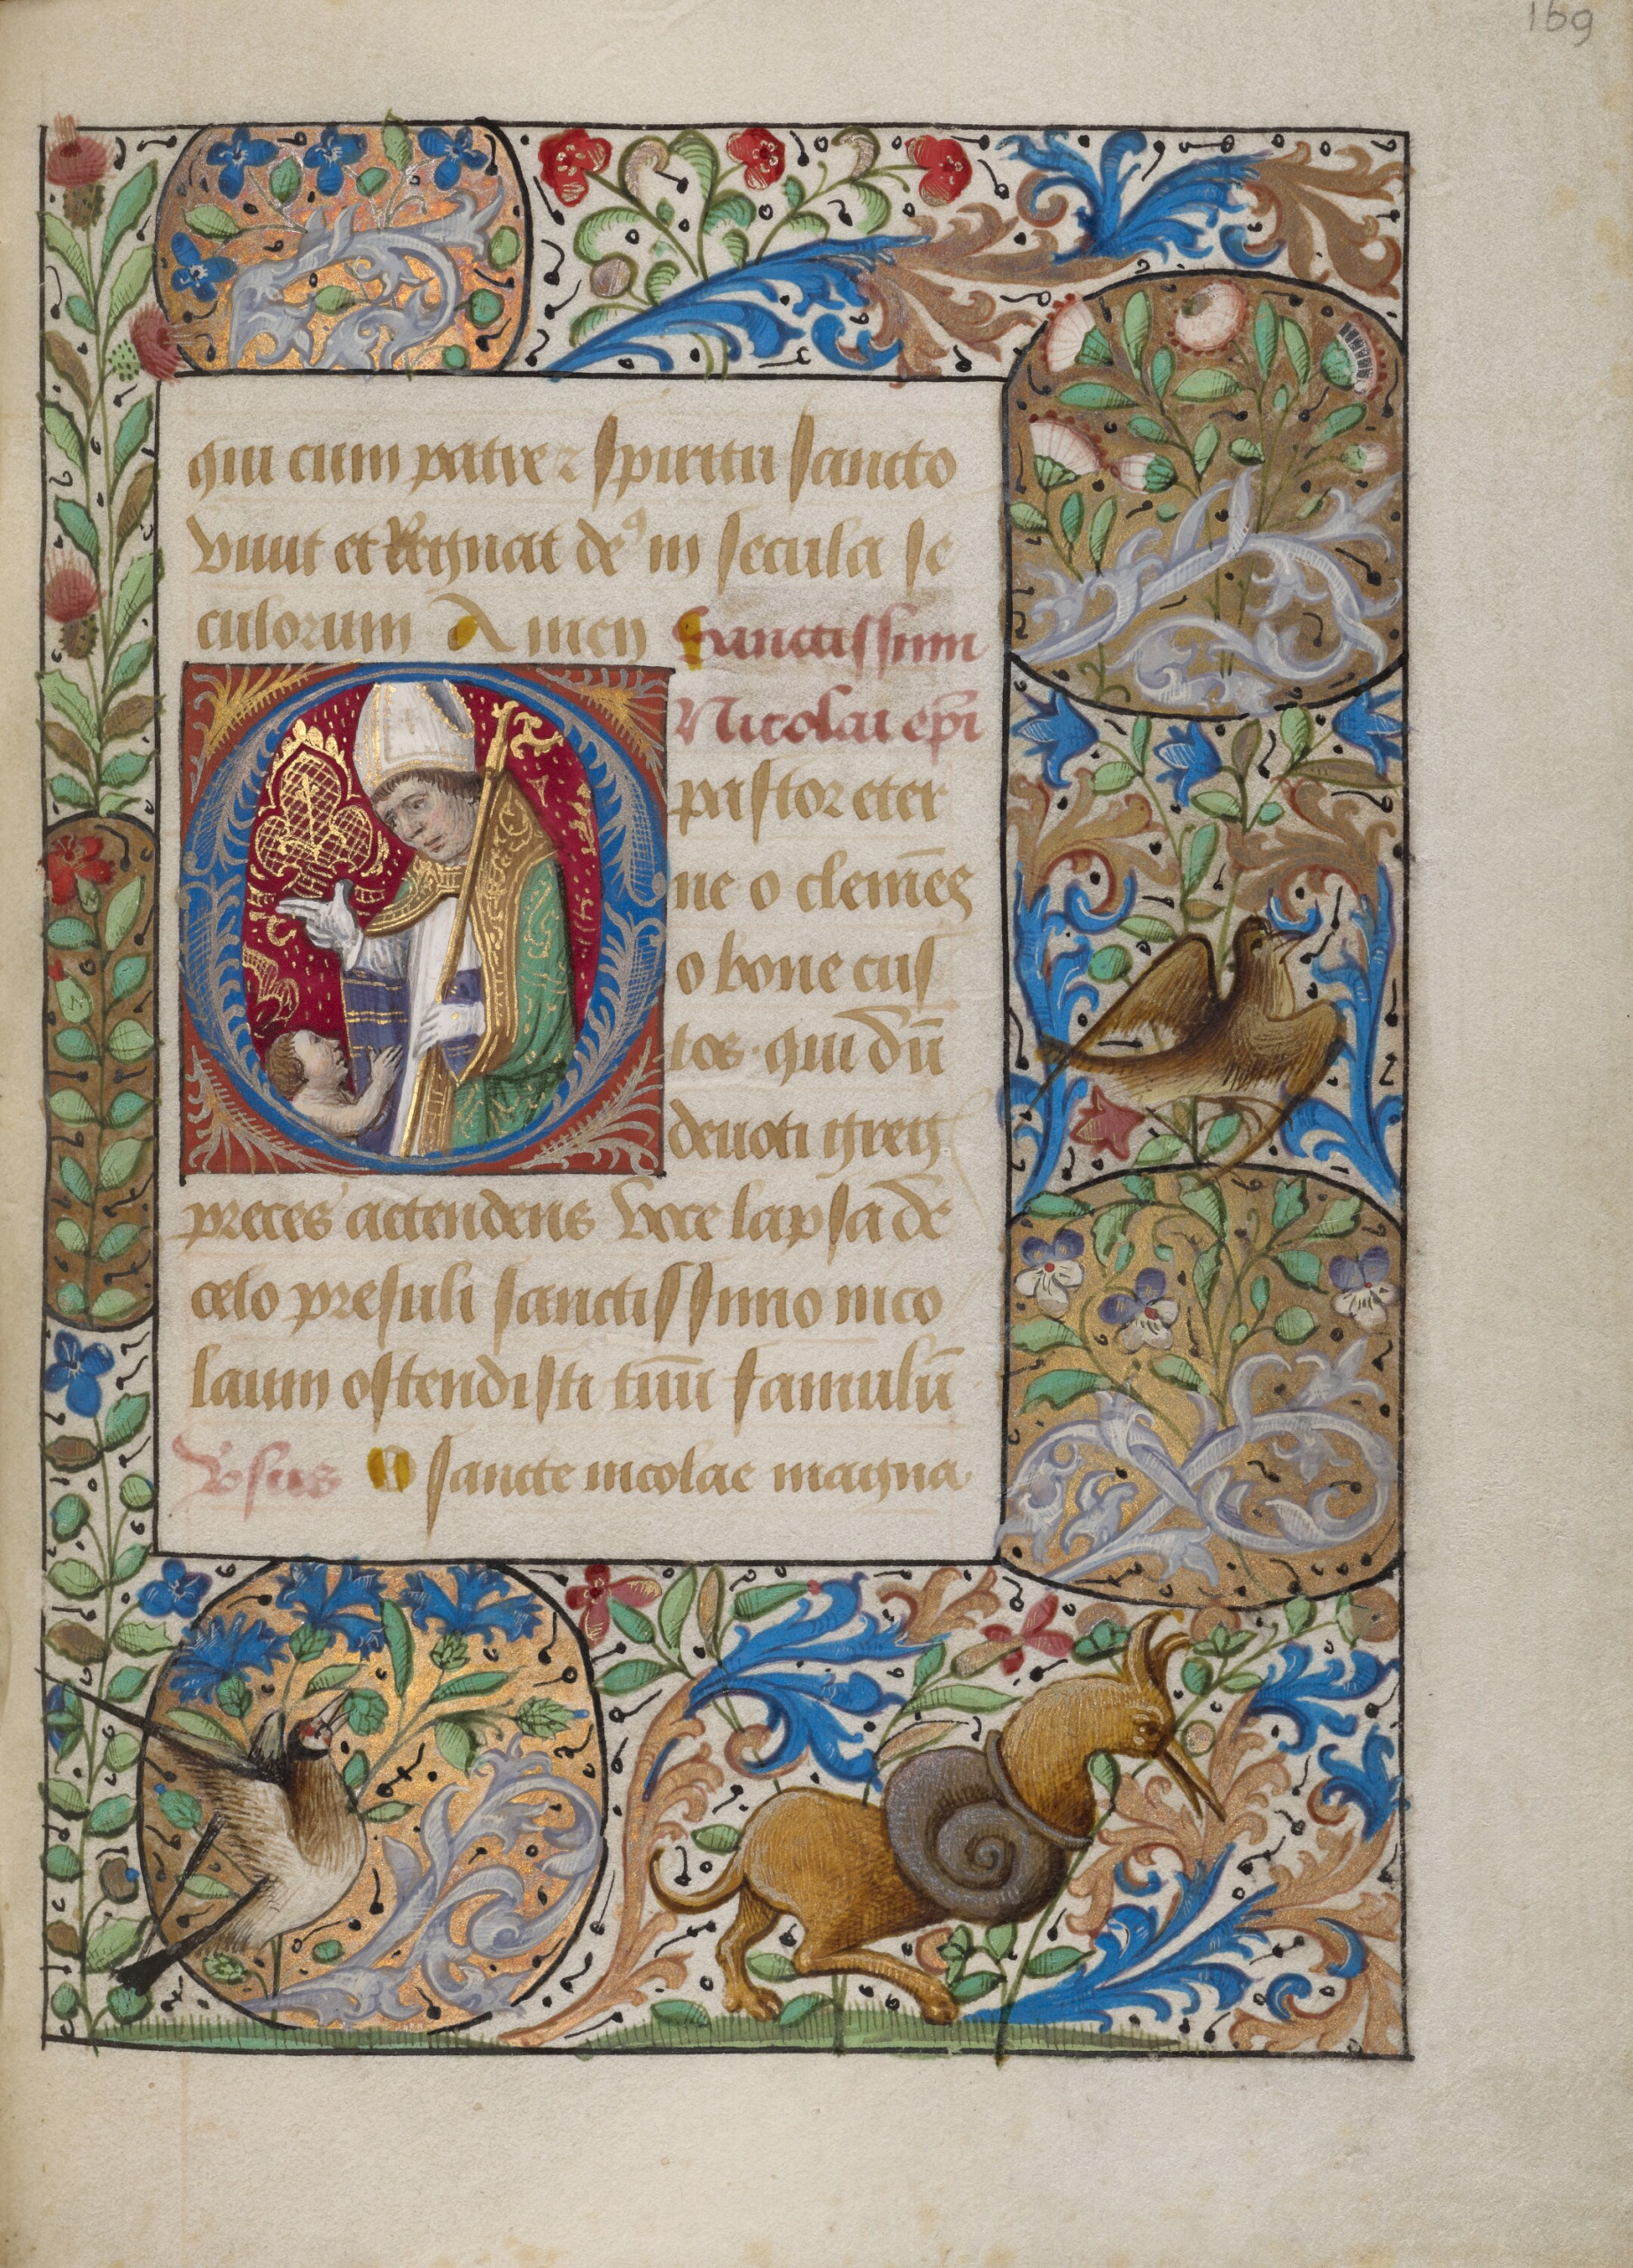 169
qui cum patre ⁊ spiritu sancto
viuit et Regnat de⁹ in secula se
culorum Amen Sanctissimi
Nicolai ep̄i
O pastor eter
ne o clemēs
o bone cus
tos qui dū
deuoti gregis
preces actendens voce lapsa de
celo presuli sanctissimo nico
laum ostendisti tuū famulū
v̄sus O sancte nicolae magna